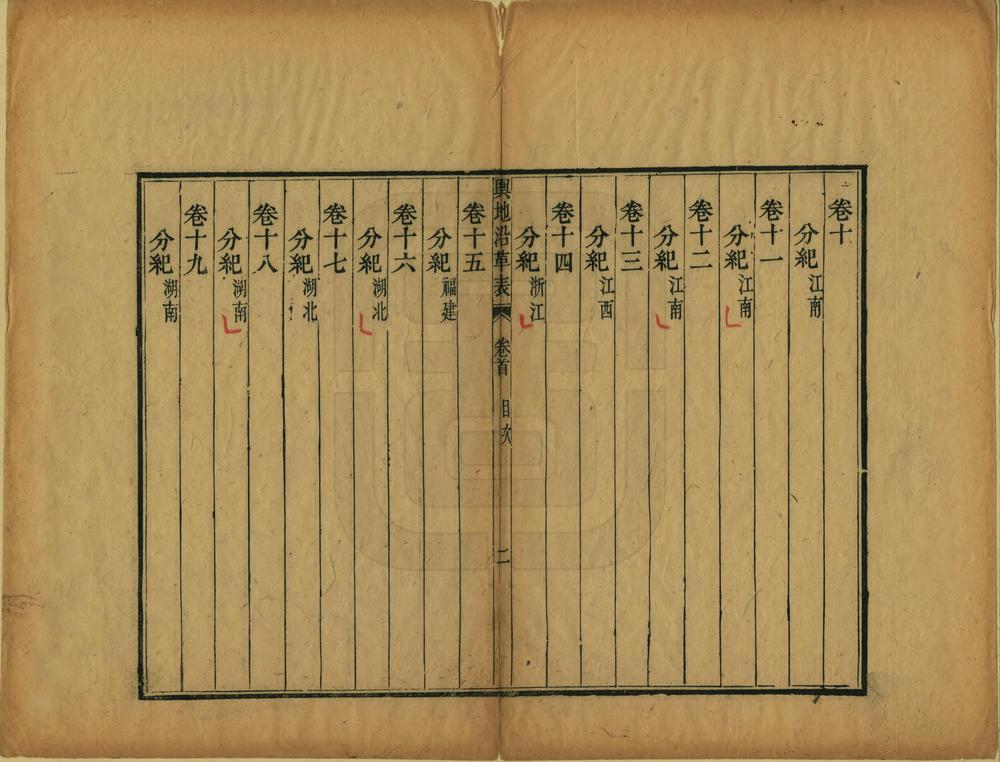 卷十
分紀江南
卷十一
分紀江南
卷十二
分紀江南
卷十三
分紀江西
卷十四
分紀浙江
輿地沿革表 卷首 目次 二
卷十五
分紀福建
卷十六
分紀湖北
卷十七
分紀湖北
卷十八
分紀湖南
卷十九
分紀湖南